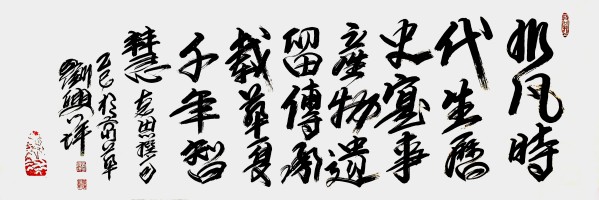 非凡時
代生曆
史寔事
產物遺
留傳承
載華夏
千年智
慧
乙巳
劉興祥